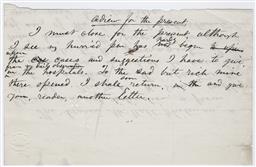 adieu for the present.
I must close for the present, although
I see my hurried pen has hardly begun
upon the cases and suggestions I have to give
from my daily observation
in the hospitals. To the sad but rich mine
there opened I shall soon return, and give
you, reader, another letter.